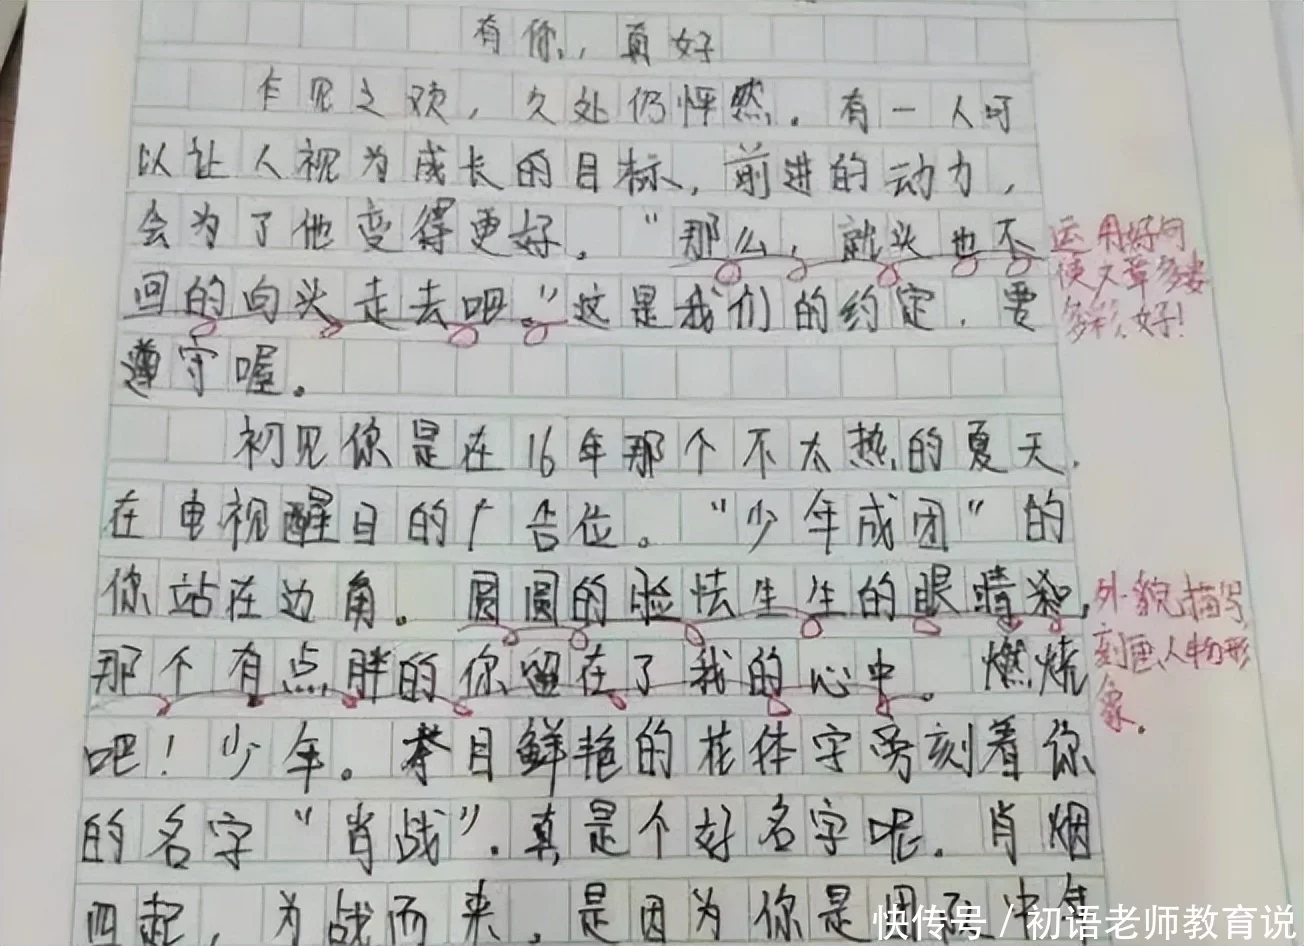 有你,真好
乍见之欢，久处仍怦然。有一人可
以让人视为成长的目标，前进的动力，
会为了他变得更好。“那么，就头也不
回的向头走去吧。”这是我们的约定，要
遵守喔。
初见你是在16年那个不太热的夏天，
在电视醒目的广告位。“少年成团”的
你站在边角。圆圆的脸怯生生的眼睛
那个有点胖的你留在了我的心中。燃烧
吧！少年。夺目鲜艳的花体字旁刻着你
的名字“肖战”，真是个好名字呢。肖烟
四起，为战而来，是因为你是
运用好句
使文章多姿
多彩,好!
外貌描写,
刻画人物形
象。
快传号 / 初语老师教育说